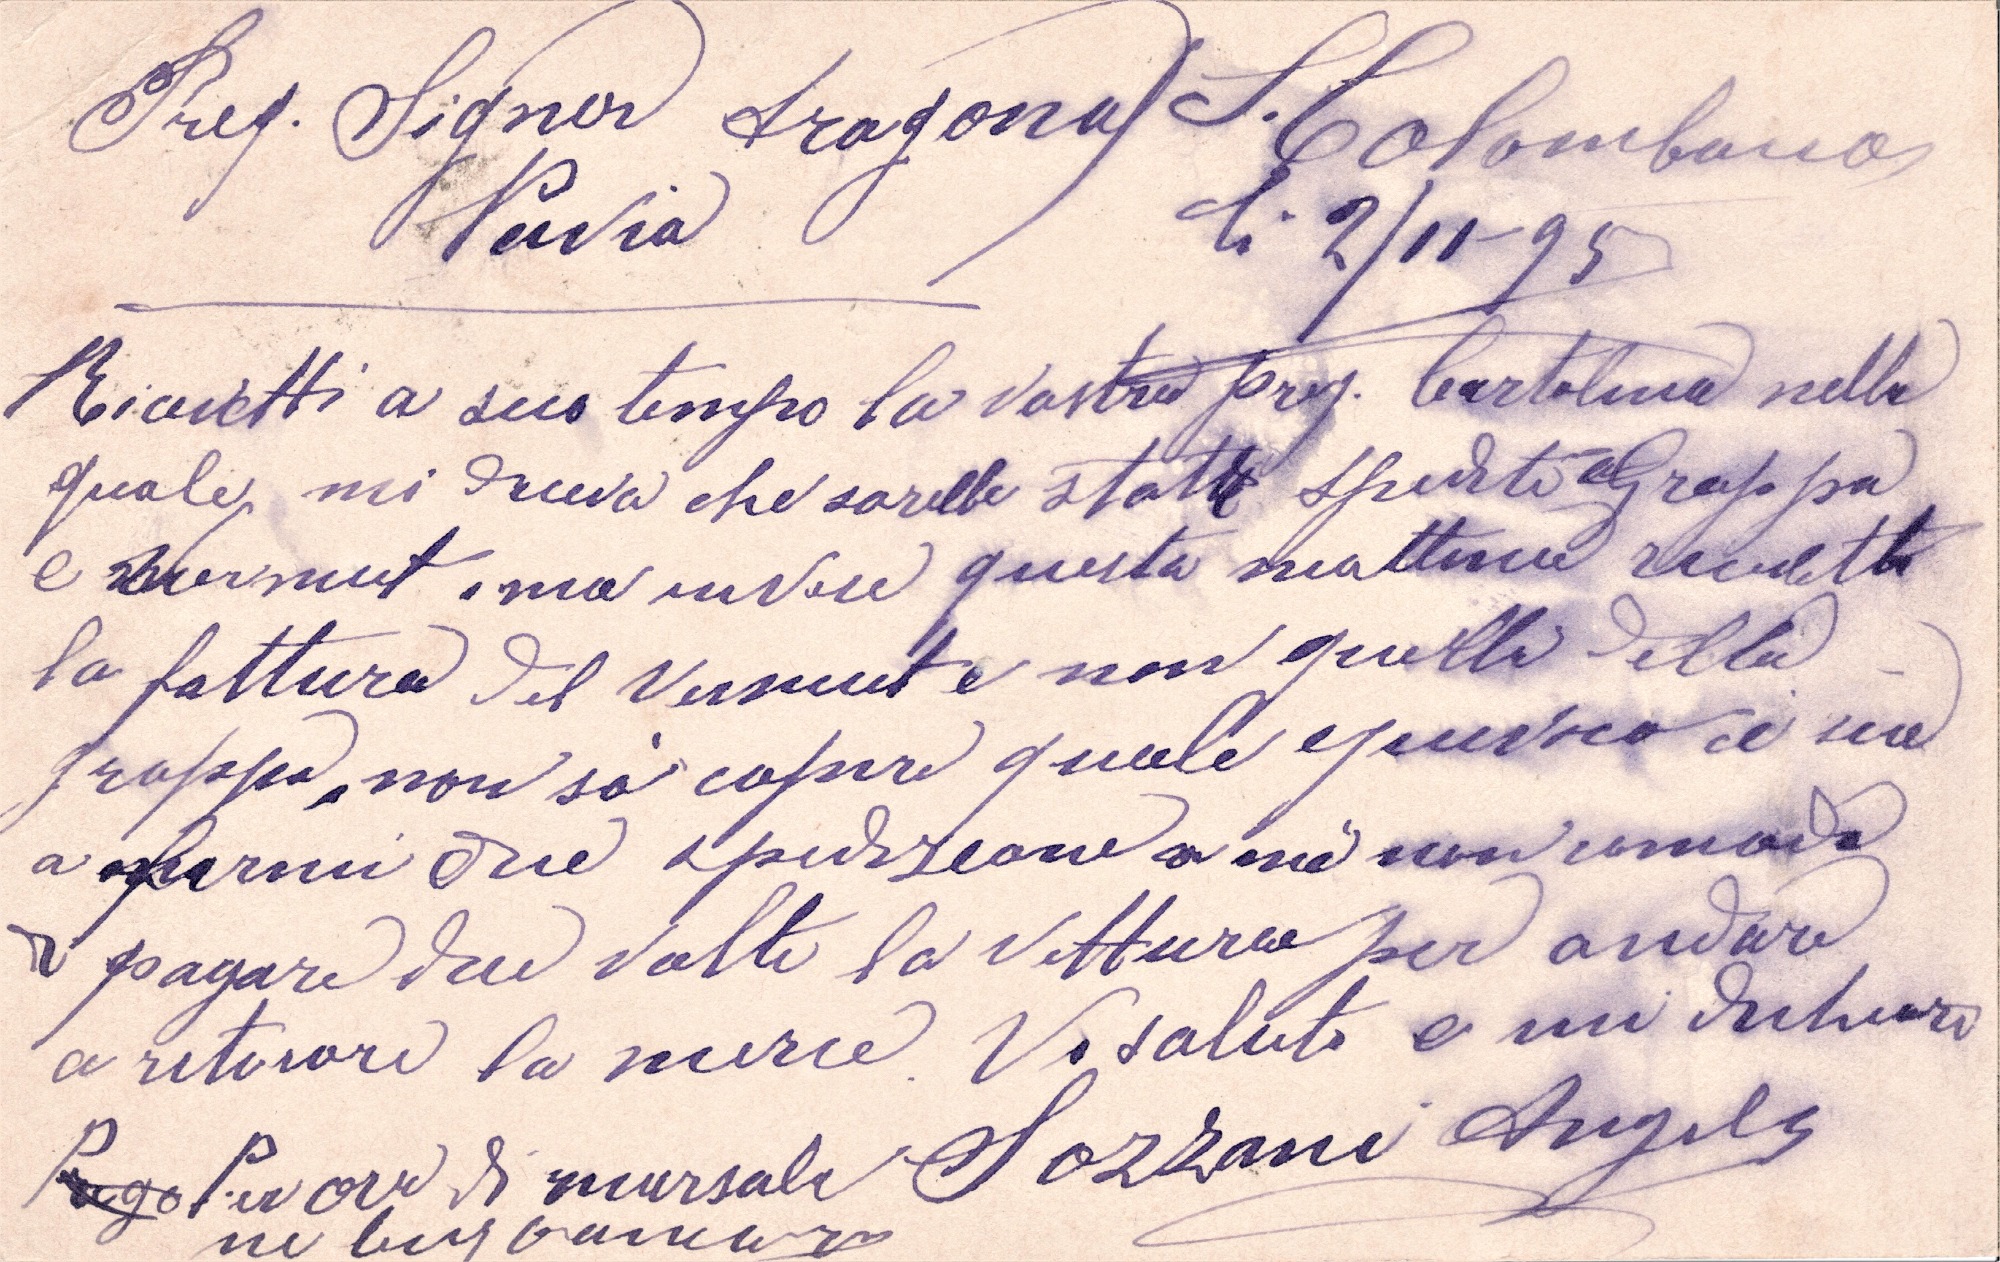 Preg. Signor Aragona
S. Colombano
Pavia
li 2/11-95
Ricevetti a suo tempo la vostra preg. Cartolina nella
quale, mi diceva che sarebbe stato spedito Grappa
e vermut, ma invece questa mattina ricevetti
la fattura del Vermut e non quella della
grappa, non sò capire quale equivoco è sia
a farmi due spedizione a mè non comoda
di pagare due volte la vettura per andare
a ritirare la merce. Vi saluto e mi dichiaro
Sozzani Angelo
Per ora di marsala
ne